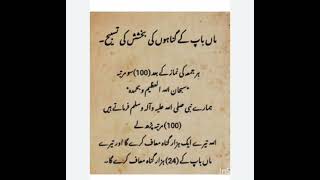 ماں باپ کے گناہوں کی بخشش کی تسبیح۔
ہر جمعہ کی نماز کے بعد (100) سو مرتبہ
*سبحان اللہ العظیم و بحمدہ*
ہمارے نبی صلی اللہ علیہ وآلہ وسلم فرماتے ہیں
(100) مرتبہ پڑھ لے
اللہ تیرے ایک ہزار گناہ معاف کرے گا اور تیرے
ماں باپ کے (24) ہزار گناہ معاف کرے گا۔